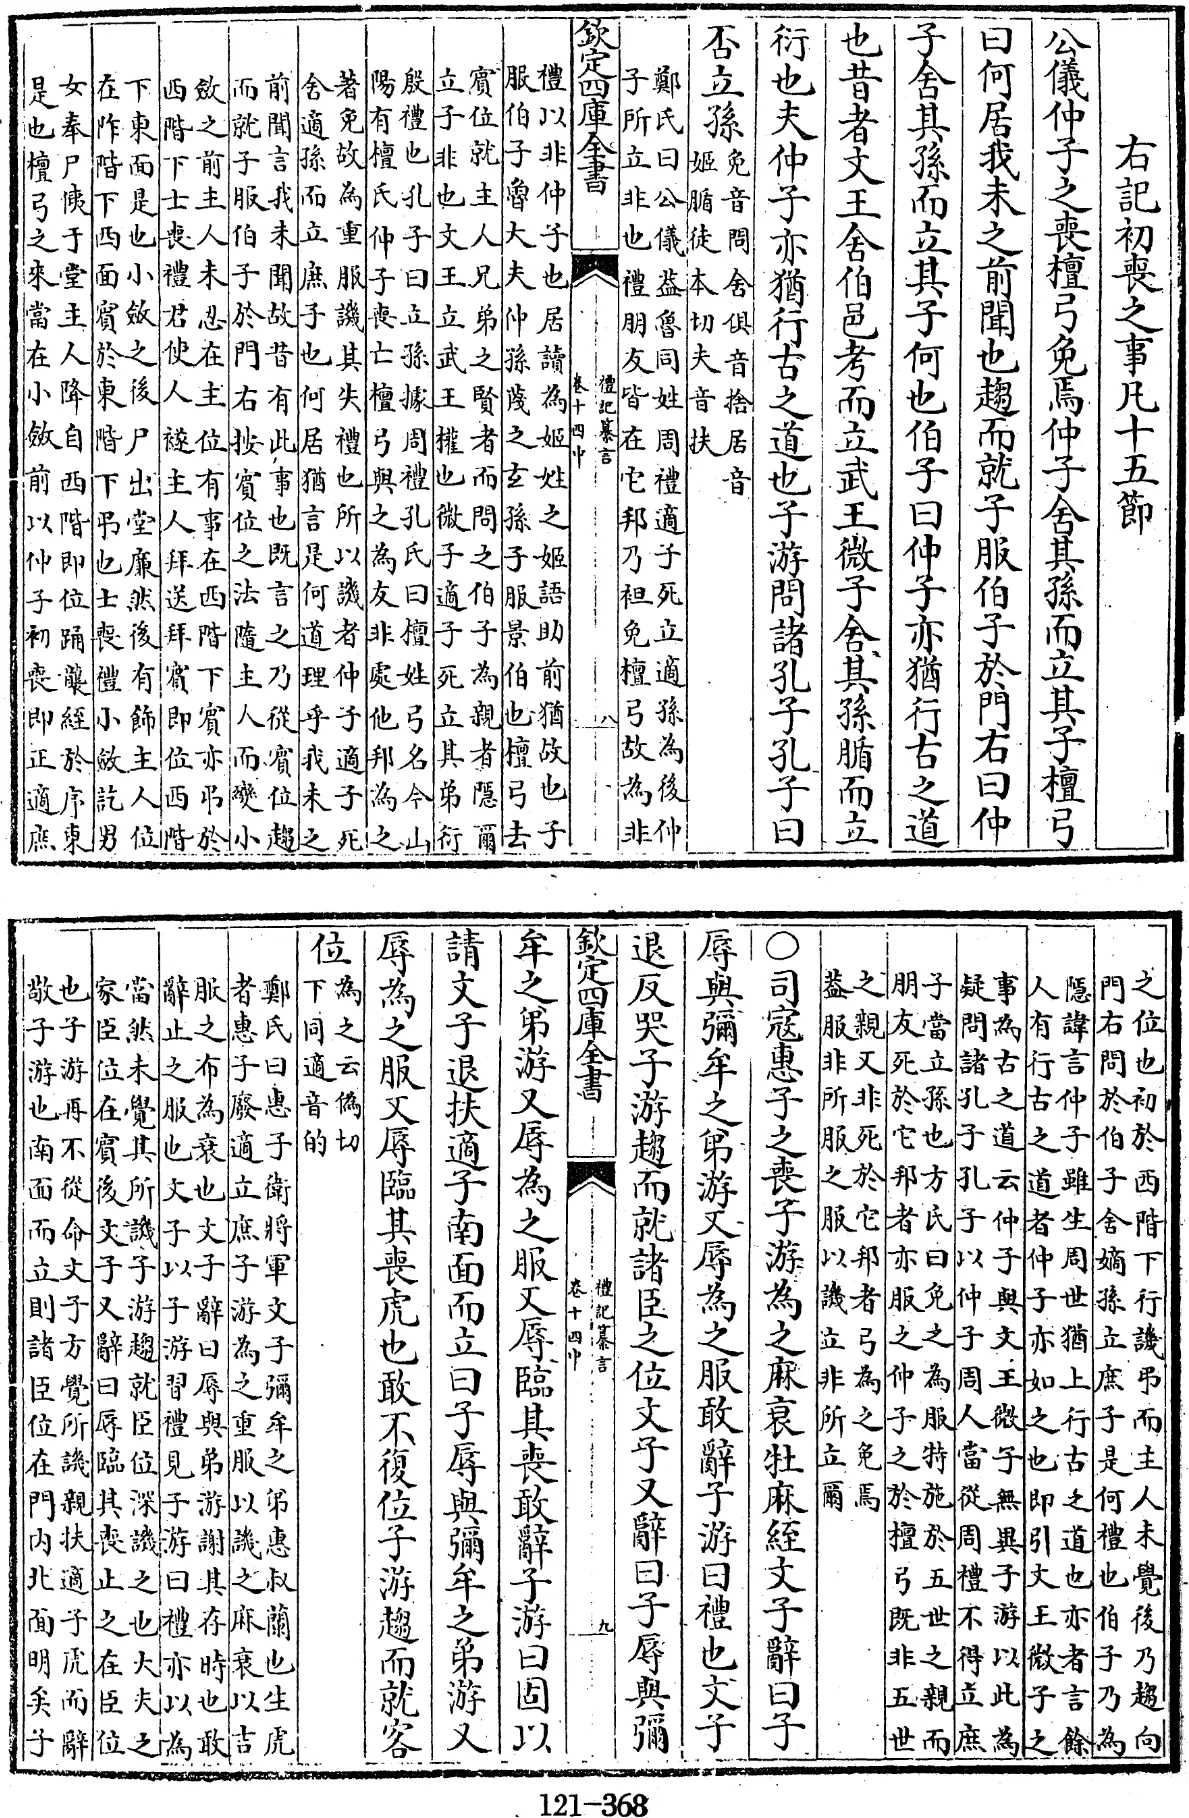 右記初喪之事凡十五節
公儀仲子之喪檀弓免焉仲子舍其孫而立其子檀弓
曰何居我未之前聞也趨而就子服伯子於門右曰仲
子舍其孫而立其子何也伯子曰仲子亦猶行古之道
也昔者文王舍伯邑考而立武王微子舍其孫腯而立
衍也夫仲子亦猶行古之道也子游問諸孔子孔子曰
否立孫
免音問舍俱音捨居音
姬腯徒本切夫音扶
鄭氏曰公儀葢魯同姓周禮適子死立適孫為後仲
子所立非也禮朋友皆在它邦乃袒免檀弓故為非
欽定四庫全書
禮記纂言
卷十四中
八
禮以非仲子也居讀為姬姓之姬語助前猶故也子
服伯子魯大夫仲孫蔑之玄孫子服景伯也檀弓去
賓位就主人兄弟之賢者而問之伯子為親者隱爾
立子非也文王立武王權也微子適子死立其弟衍
殷禮也孔子曰立孫據周禮孔氏曰檀姓弓名今山
陽有檀氏仲子喪亡檀弓與之為友非處他邦為之
著免故為重服譏其失禮也所以譏者仲子適子死
舍適孫而立庶子也何居猶言是何道理乎我未之
前聞言我未聞故昔有此事也既言之乃從賓位趨
而就子服伯子於門右按賓位之法隨主人而變小
斂之前主人未忍在主位有事在西階下賓亦弔於
西階下士喪禮君使人襚主人拜送拜賓即位西階
下東面是也小斂之後尸出堂廉然後有飾主人位
在阼階下西面賓於東階下弔也士喪禮小斂訖男
女奉尸侇于堂主人降自西階即位踊襲絰於序東
是也檀弓之來當在小斂前以仲子初喪即正適庶
之位也初於西階下行譏弔而主人未覺後乃趨向
門右問於伯子舍嫡孫立庶子是何禮也伯子乃為
隱諱言仲子雖生周世猶上行古之道也亦者言餘
人有行古之道者仲子亦如之也即引文王微子之
事為古之道云仲子與文王微子無異子游以此為
疑問諸孔子孔子以仲子周人當從周禮不得立庶
子當立孫也方氏曰免之為服特施於五世之親而
朋友死於它邦者亦服之仲子之於檀弓既非五世
之親又非死於它邦者弓為之免焉
葢服非所服之服以譏立非所立爾
○司寇惠子之喪子游為之麻衰牡麻絰文子辭曰子
辱與彌牟之弟游又辱為之服敢辭子游曰禮也文子
退反哭子游趨而就諸臣之位文子又辭曰子辱與彌
欽定四庫全書
禮記纂言
卷十四中
九
牟之弟游又辱為之服又辱臨其喪敢辭子游曰固以
請文子退扶適子南面而立曰子辱與彌牟之弟游又
辱為之服又辱臨其喪虎也敢不復位子游趨而就客
位
為之云偽切
下同適音的
鄭氏曰惠子衛將軍文子彌牟之弟惠叔蘭也生虎
者惠子廢適立庶子游為之重服以譏之麻衰以吉
服之布為衰也文子辭曰辱與弟游謝其存時也敢
辭止之服也文子以子游習禮見子游曰禮亦以為
當然未覺其所譏子游趨就臣位深譏之也大夫之
家臣位在賓後文子又辭曰辱臨其喪止之在臣位
也子游再不從命文子方覺所譏親扶適子虎而辭
敬子游也南面而立則諸臣位在門内北面明矣子
121-368